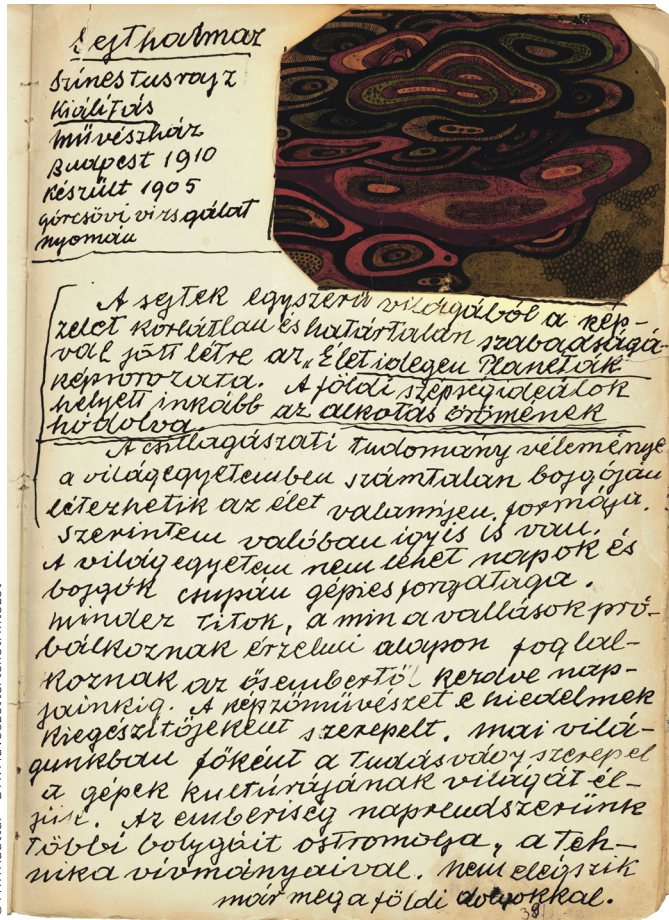 Sejthalmaz
Színes tusrajz
Kiálitás
Művészház
Budapest 1910
készült 1905
górcsövi vizsgálat
nyomán
A sejtek egyszerű világából a kép-
zelet korlátlan és határtalan szabadságá-
val jött létre az „Életidegen Planéták
képsorozata. A földi szépségideálok
helyett inkább az alkotás örömének
hódolva.
A csillagászati tudomány véleménye
a világegyetemben számtalan bojgóján
létezhetik az élet valamijen formája.
Szerintem valóban így is van.
A világegyetem nem lehet napok és
bojgók csupán gépies forgataga.
mindez titok, a min a vallások pró-
bálkoznak érzelmi alapon foglal-
koznak az ősembertől kezdve nap-
jainkig. A képzőművészet e hiedelmek
kiegészítőjeként szerepelt. mai vilá-
gunkban főként a tudásvágy szerepel
a gépek kultúrájának világát él-
jük. Az emberiség naprendszerünk
többi bolygóit ostromolja, a teh-
nika vívmányaival. nem elégszik
már meg a földi dolgokkal.
38